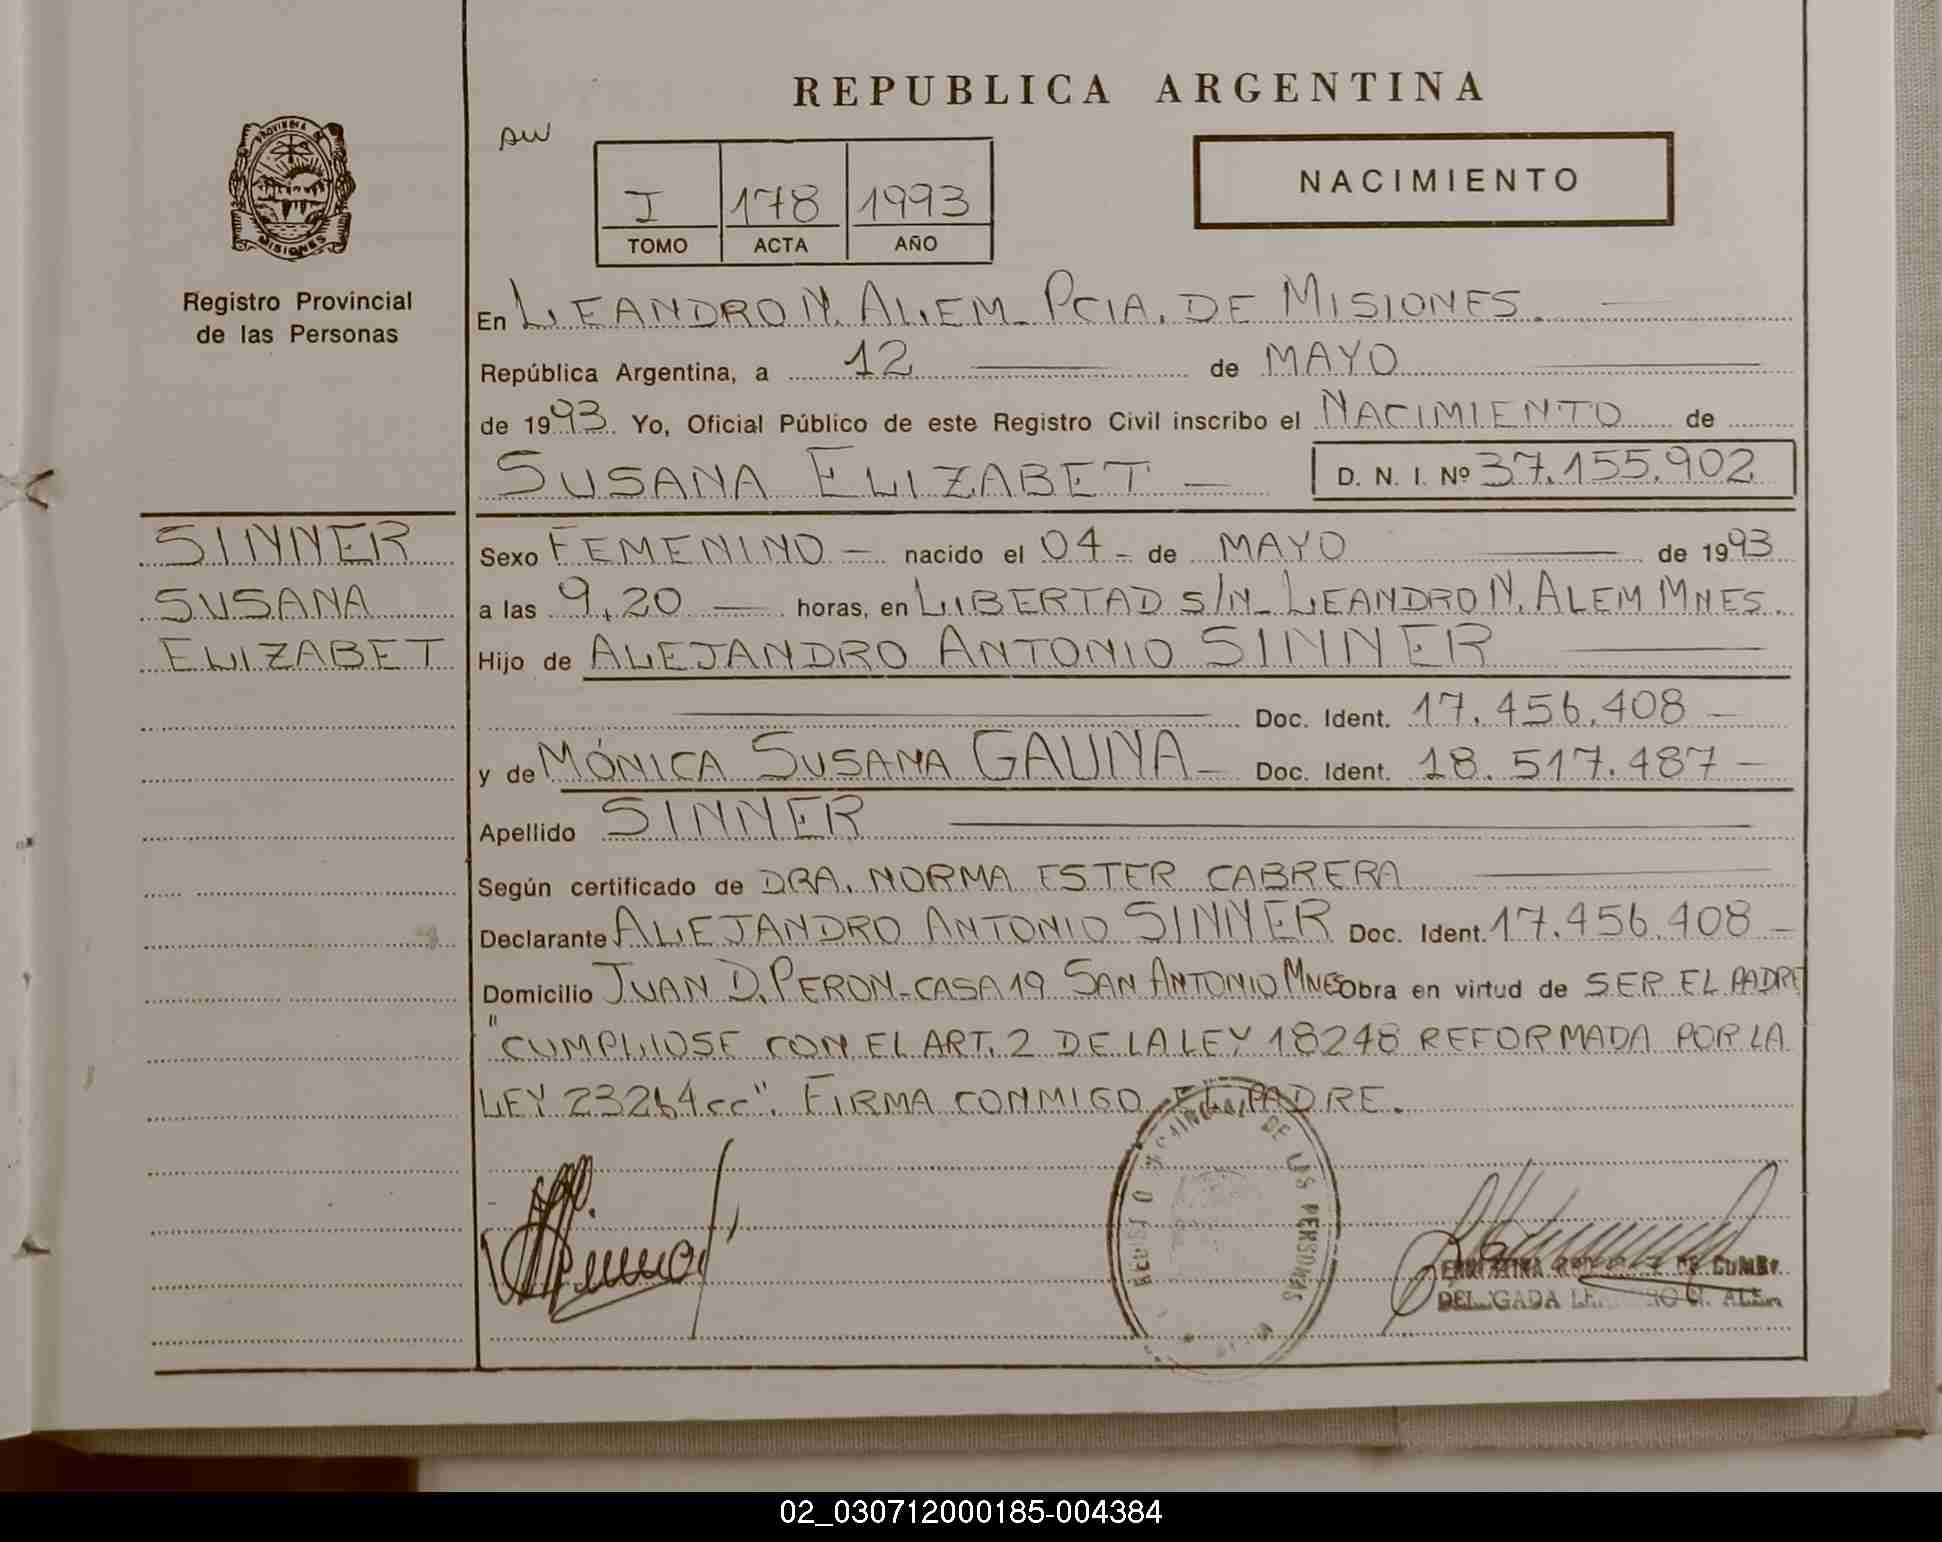 REPUBLICA ARGENTINA
PROVINCIA DE MISIONES
Registro Provincial
de las Personas
I 178 1993
TOMO ACTA AÑO
NACIMIENTO
En LEANDRO N. ALEM - PCIA. DE MISIONES.
República Argentina, a 12 de MAYO
de 1993 Yo, Oficial Público de este Registro Civil inscribo el NACIMIENTO de
SUSANA ELIZABET — D. N. I. Nº 37.155.902
SINNER
SUSANA
ELIZABET
Sexo FEMENINO — nacido el 04 - de MAYO de 1993
a las 9,20 — horas, en LIBERTAD S/N - LEANDRO N. ALEM MNES.
Hijo de ALEJANDRO ANTONIO SINNER
Doc. Ident. 17.456.408 —
y de MÓNICA SUSANA GAUNA — Doc. Ident. 18.517.487 —
Apellido SINNER
Según certificado de DRA. NORMA ESTER CABRERA
Declarante ALEJANDRO ANTONIO SINNER Doc. Ident. 17.456.408 —
Domicilio JUAN D. PERON - CASA 19 SAN ANTONIO MNES Obra en virtud de SER EL PADRE
"CUMPLIOSE CON EL ART. 2 DE LA LEY 18248 REFORMADA POR LA
LEY 23264 cc". FIRMA CONMIGO EL PADRE.
REGISTRO PROVINCIAL DE LAS PERSONAS
DELEGADA LEANDRO N. ALEM
02_030712000185-004384